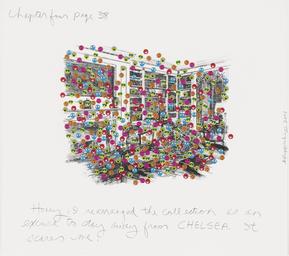 Chapter four page 38
Honey, I rearranged the collection as an
excuse to stay away from CHELSEA. It
scares me!